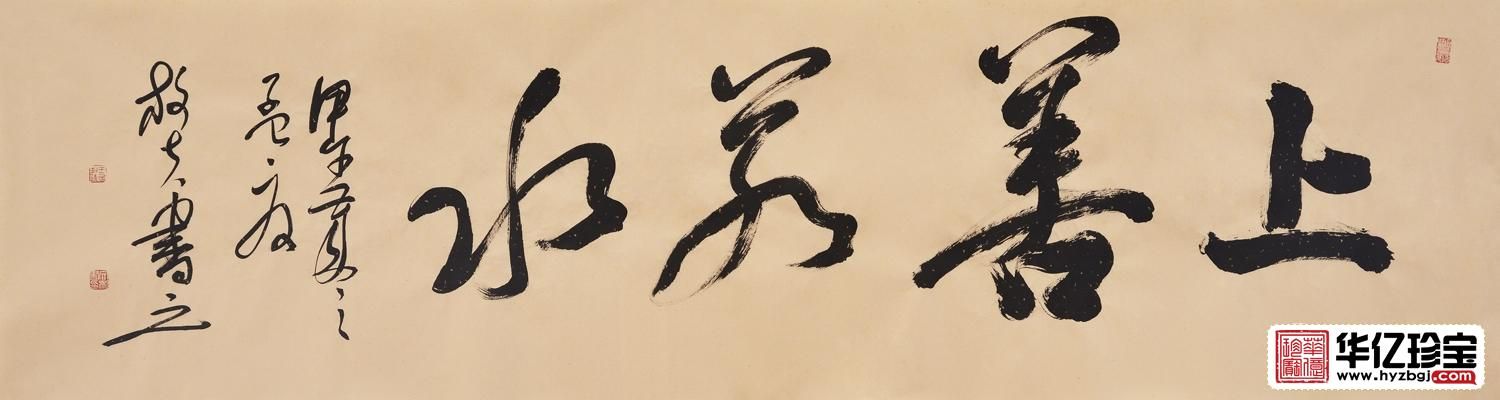 上善若水
甲午夏之
孟夏
敬夫書之
华亿珍宝
www.hyzbgj.com